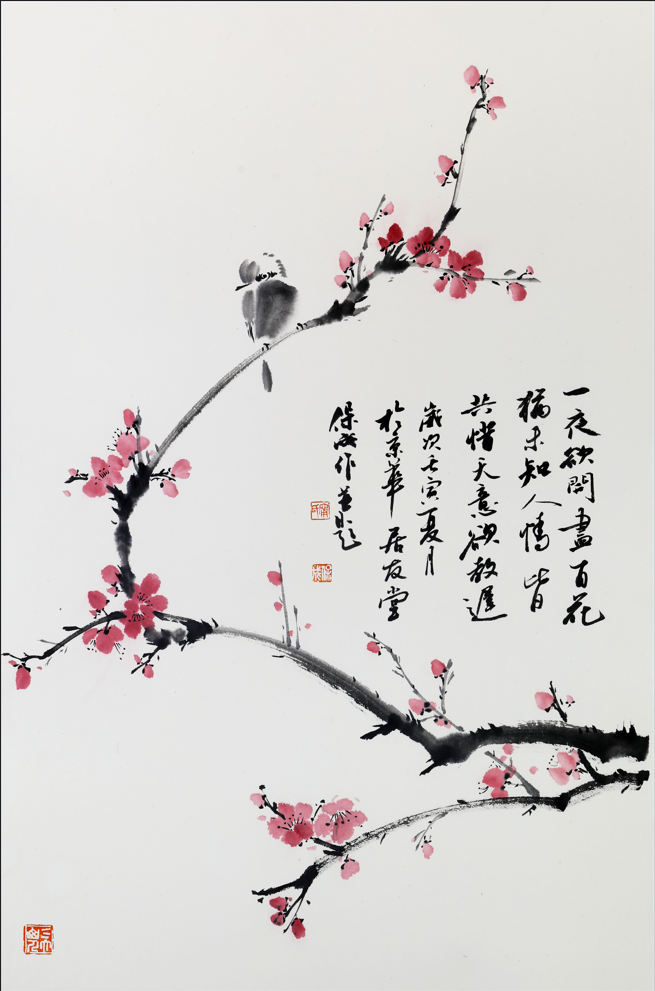 一夜欲開盡百花
猶未知人情皆
共惜天意欲教遲
歲次壬寅夏月
於京華居友堂
保成作並題